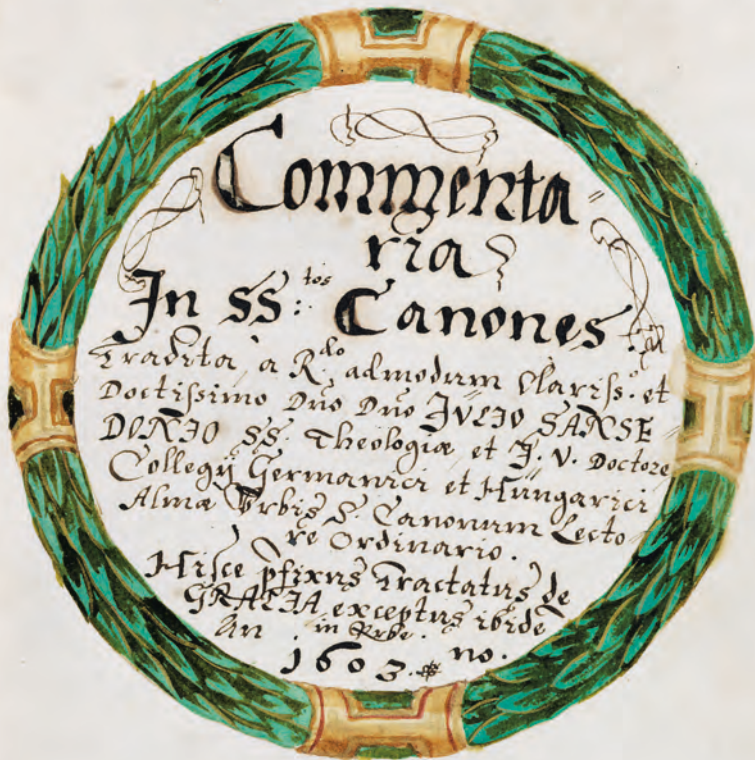 Commenta〃
ria
In SS:^tos Canones.
Tradita, a R^do. admodum Clariss.^o et
Doctissimo Dno Dno IVLIO SANSE〃
DONIO SS. Theologiæ et J. V. Doctore
Collegÿ Germanici et Hungarici
Almæ Vrbis S. Canonum Lecto
re Ordinario.
Hisce pfixus Tractatus de
GRATIA exceptus ibidē
An in Vrbe. no.
1603.